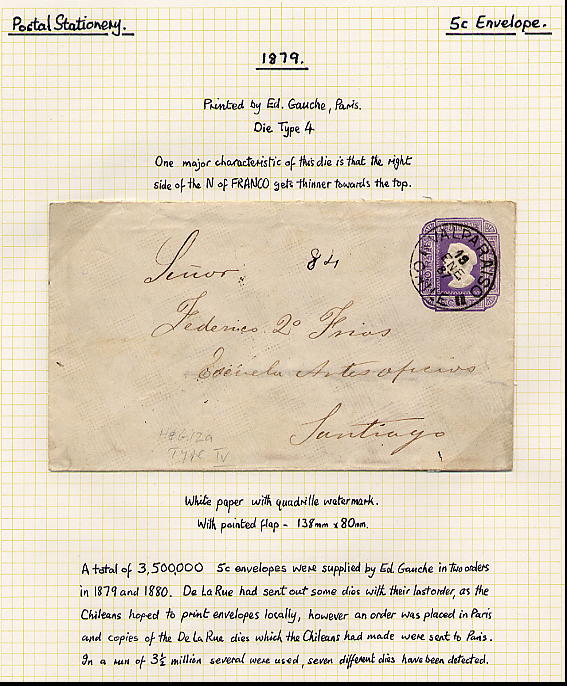 Postal Stationery.
5c Envelope.
1879.
Printed by Ed. Gauche, Paris.
Die Type 4
One major characteristic of this die is that the right
side of the N of FRANCO gets thinner towards the top.
VALPARAISO
18
ENE
Señor
84
Federico 2º Frias
Escuela Artes oficios
Santiago
H&G 12a
TYPE IV
White paper with quadrille watermark.
With pointed flap - 138mm x 80mm.
A total of 3,500,000 5c envelopes were supplied by Ed. Gauche in two orders
in 1879 and 1880. De La Rue had sent out some dies with their last order, as the
Chileans hoped to print envelopes locally, however an order was placed in Paris
and copies of the De La Rue dies which the Chileans had made were sent to Paris.
In a run of 3½ million several were used, seven different dies have been detected.